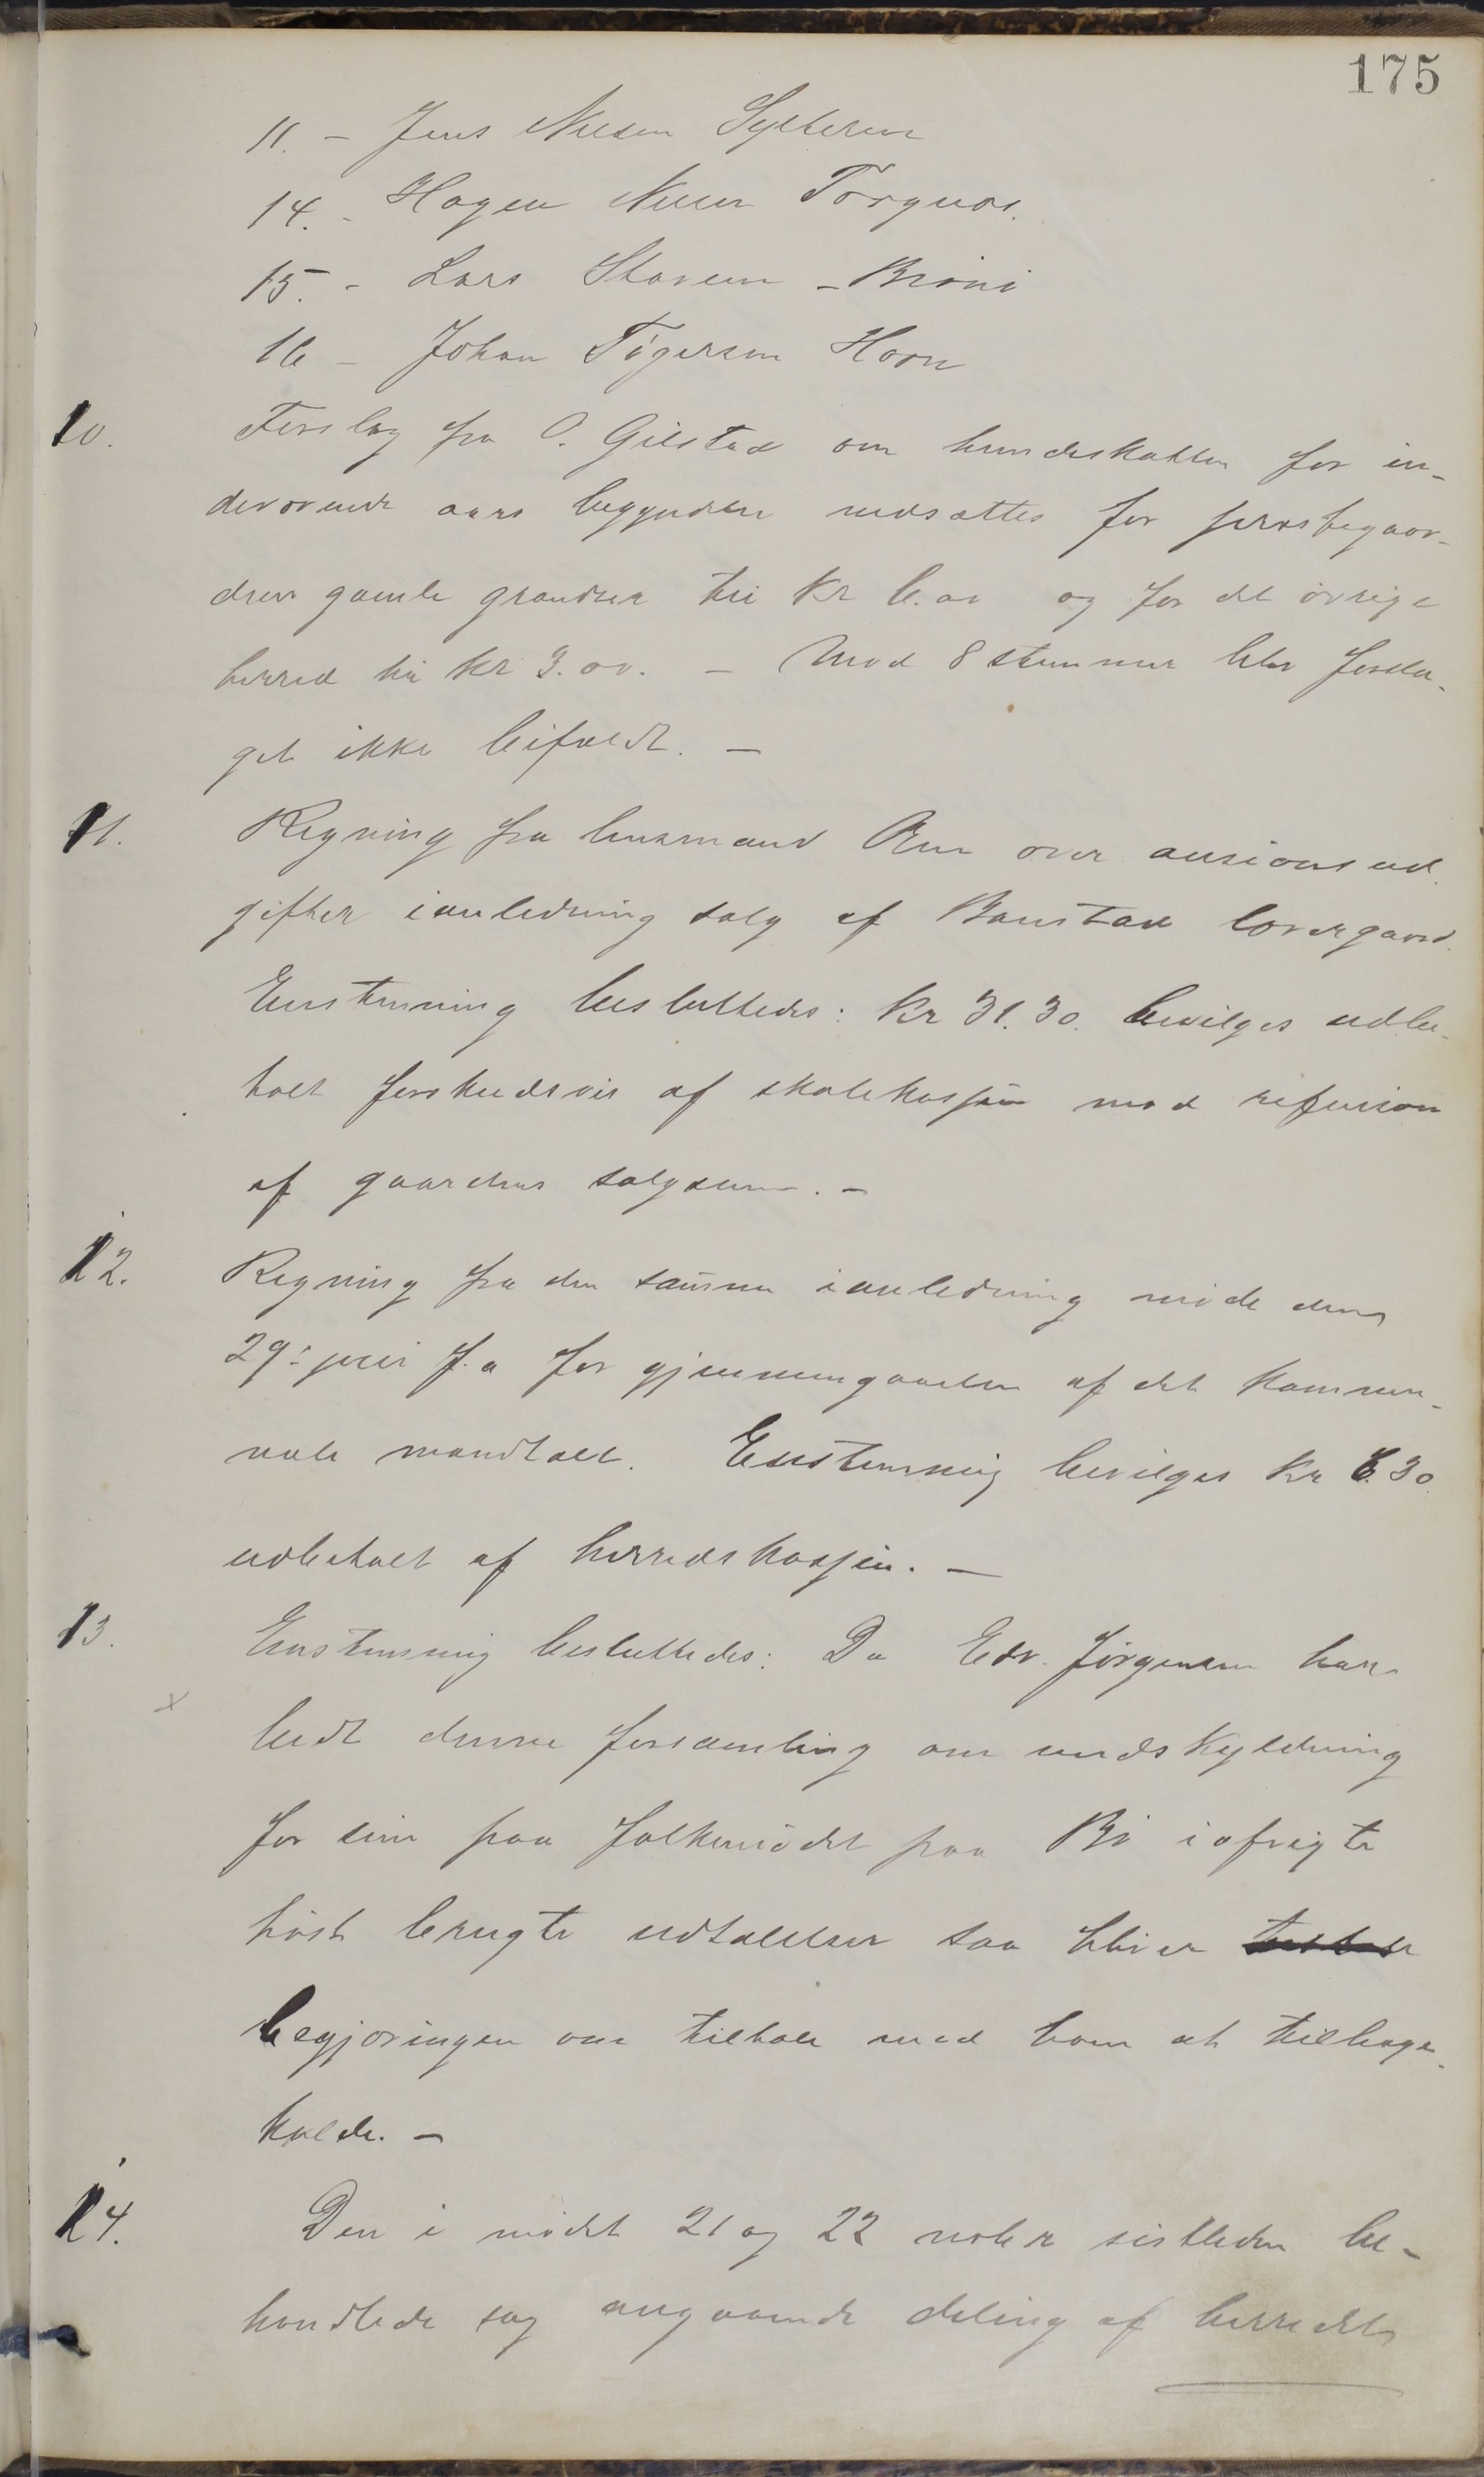 175
11. - Jens Nilsen Sylteren
14. - Hagen Torgnæs.
15. - Lars Stavem - Brøni
16 - Johan Tøgersen Horn
10. Forslag fra O. Gilstad om hundeskatten for in-
deværende aars begyndelse nedsættes for
gamle grændser til Kr 6.00 og for det øvrige
herred til kr 3.00. - Mod 8 stemmer blev forsla-
get ikke bifaldt. -
11. Regning fra lensmand over auxionsud-
gifter ianledning salg af Baustad lovergaard.
Enstemmig besluttedes: Kr 31.30. bevilges udbe-
talt forskudsvis af skolekassen mod refusion
af gaardens salgssum. -
12. Regning fra den samme ianledning møde den
29: juli f.a for gjennemgaaelse af det kommu-
nale mandtall. Enstemmig bevilges Kr 6.30
udbetalt af herredskassen. -
13. Enstemmig besluttedes: Da Edv. Jørgensen har
bedt denne forsamling om undskyldning
for sine paa folkemødet paa Bø iafvigte
høst brugte udtalelser saa bliver
begjæringen om tiltale mod ham at tilbage-
kalde. -
14. Den i mødet 21 og 22 novbr sistleden be-
handlede sag angaaende deling af herredets